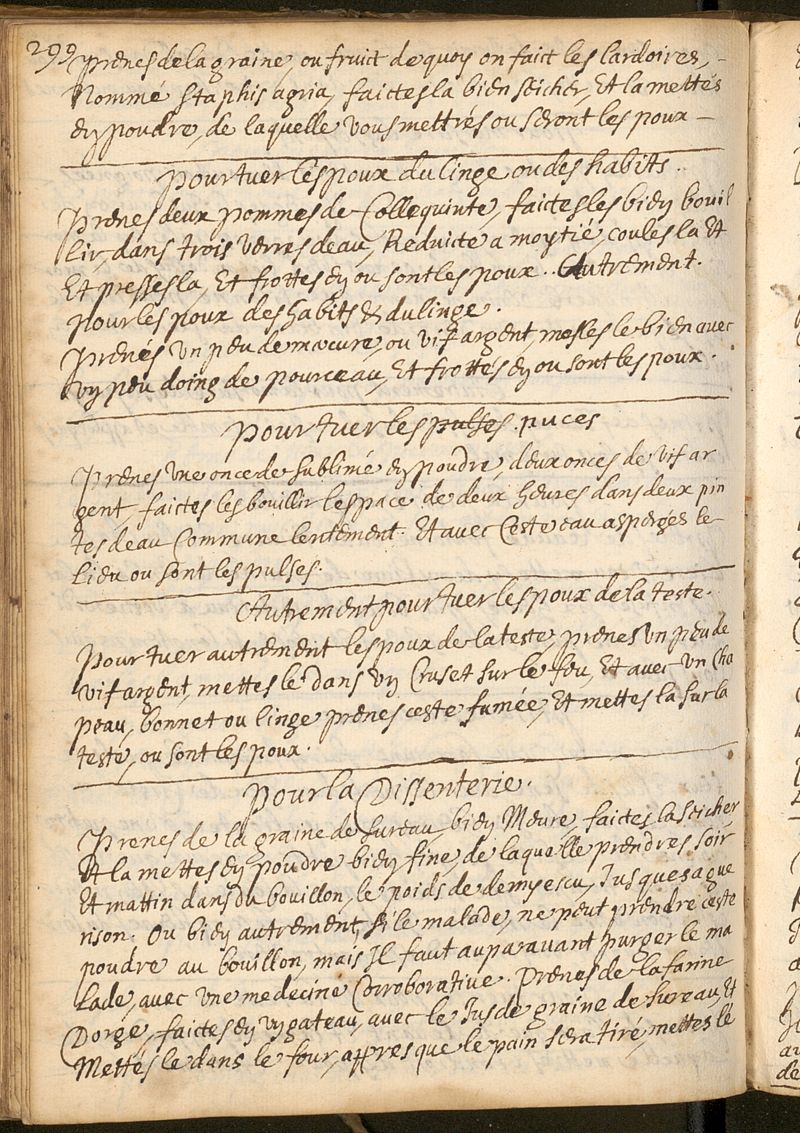 299
prenes de la graine, ou fruit de quoy on faict les lardoires,
Nommé staphis agria, faictes la bien seicher, Et la mettés
en poudre, de laquelle vous mettrés ou seront les poux
pour tuer les poux du linge ou des habits.
Prenes deux pommes de Collequinte, faictes les bien bouil
lir, dans trois verres deau, Reduicte a moytié, coules la Et
Et presses la, Et frottes en ou sont les poux.. Autrement.
pour les poux des habits & du linge.
Prenés un peu de mercure, ou vif argent, mesles le bien avec
un peu doing de pourceau, Et frottés en ou sont les poux.
pour tuer les pulses. puces
Prenes une once de sublimé en poudre, deux onces de vif ar
gent, faictes les bouillir lespace de deux heures dans deux pin
tes deau Commune lentement. Et avec Ceste eau asperges le
Lieu ou sont les pulses.
Autrement pour tuer les poux de la teste.
Pour tuer autrement les poux de la teste, prenes un peu de
vif argent, mettes le dans un Cruset sur le feu, Et avec un cha
peau, bonnet ou linge prenes ceste fumée, Et mettes la sur la
testé, ou sont les poux.
pour la Dissenterie.
Prenes de la graine de sureau bien Meure, faictes la seicher
Et la mettes en poudre bien fine, de laquelle prendres soir
Et mattin dans du bouillon, le poids de demy escu, Jusques a gue
rison. Ou bien autrement, si le malade, ne peut prendre ceste
poudre au bouillon, mais Il faut auparavant purger le ma
lade, avec une medecine Corroborative. Prenes de la farine
Dorge, faictes en un gateau, avec le Jus de graine de sureau, Et
Mettés le dans le four, appres que le pain sera tiré, mettes le